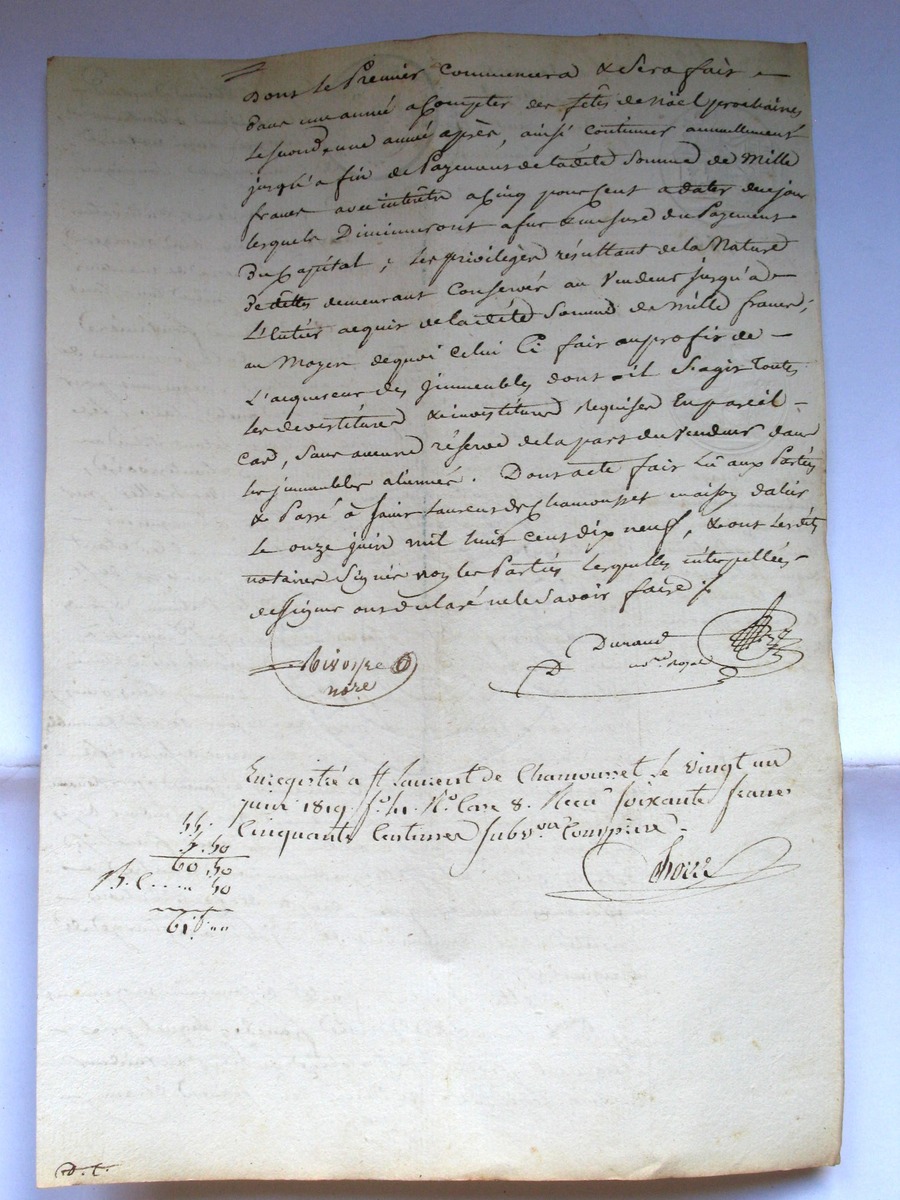 Dont le Premier commencera & Sera fait
dans une année a Compter des fêtes de Noël prochaines
Le second, une année après, ainsi continuer annuellement
jusqu'a fin de Payement de ladite Somme de Mille
francs avec intérêts a Cinq pour Cent a dater de ce jour
lesquels Diminueront a fur & mesure du Payement
Du Capital ; Les privilèges résultant de la Nature
De dettes demeurant Conservés au Vendeur jusqu'à
L'entier acquit de ladite Somme de mille francs ;
au Moyen de quoi Celui Ci fait au profit de
L'acquereur des Jmmeubles dont il S'agit Toutes
Les devestitures & investitures Requises En pareil
Cas, Sans aucune réserve de la part du Vendeur dans
les jmmeubles alienés. Dont acte fait Lû aux Parties
& Passé à Saint Laurent de Chamousset maison
Le onze juin mil huit Cent dix neuf, & ont Lesdits
notaires Signé non les Parties lesquelles interpellées
de Signer ont déclaré ne le Savoir faire ./.
Durand
nore
no.re royal
Enregistré a St Laurent de Chamousset Le vingt un
juin 1819 fo. 41 Ro Case 8. Reçu Soixante francs
Cinquante Centimes Subv.on Comprise.
55.
5.50
60.50
50
61 "
D. C.